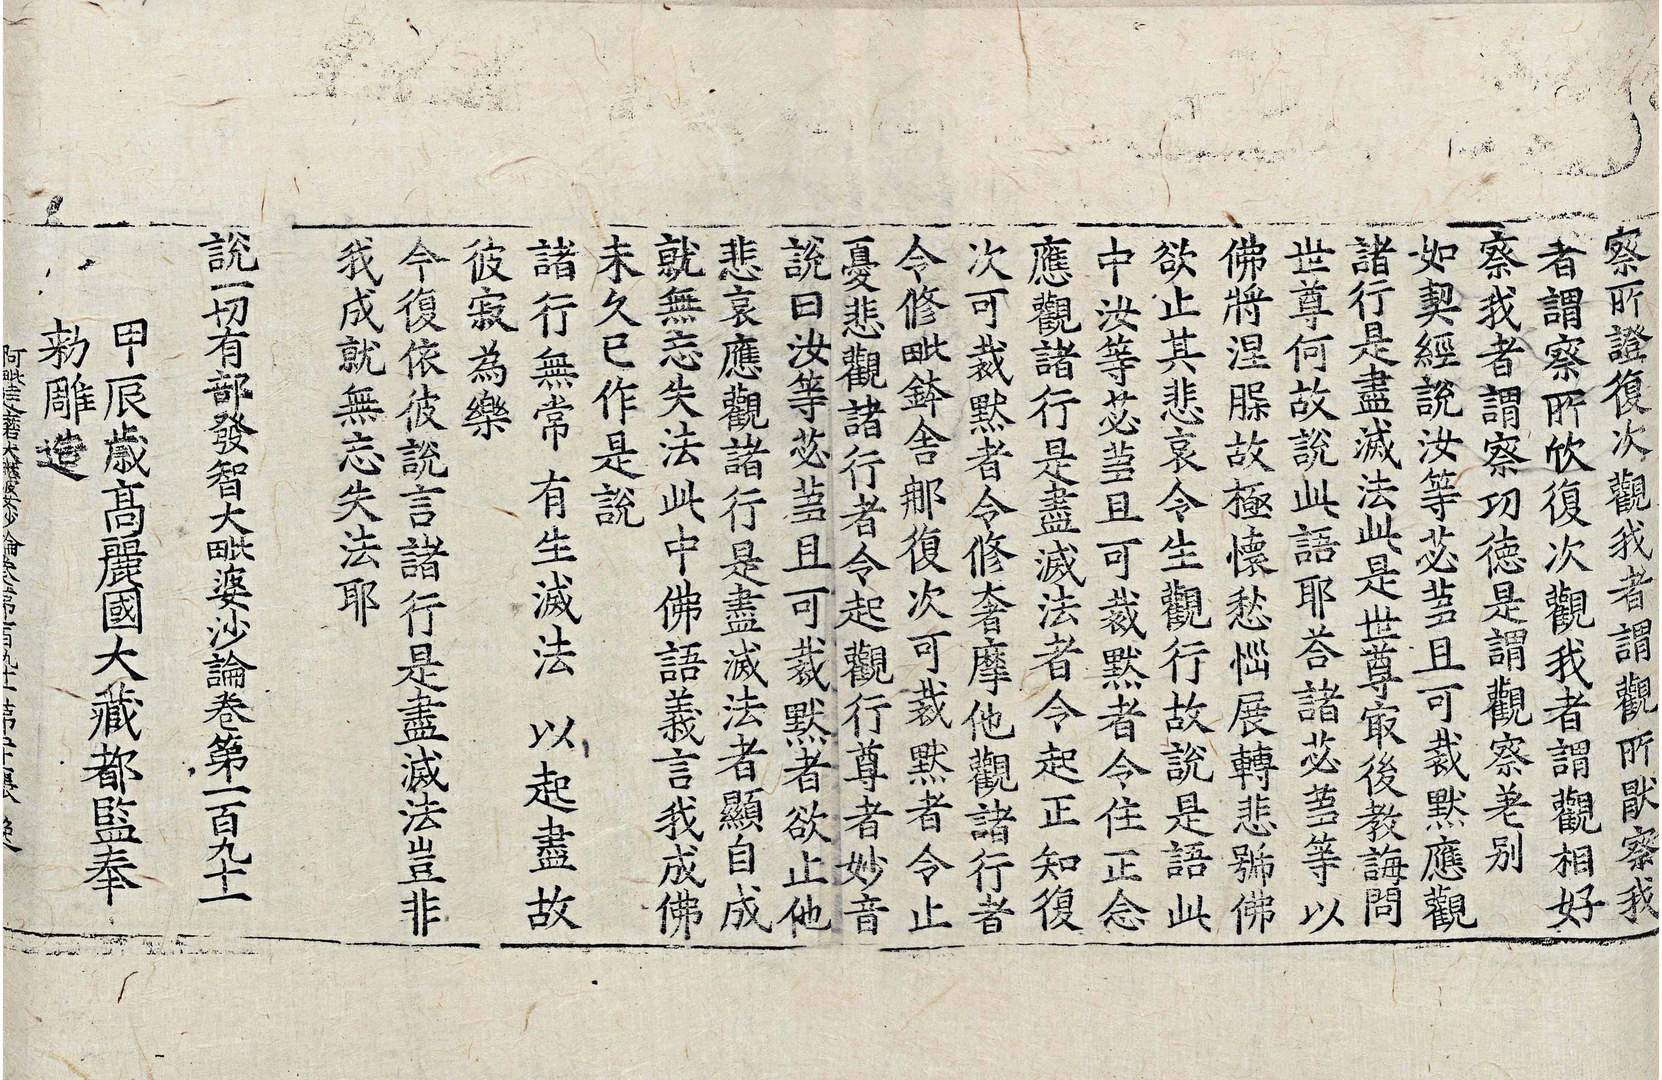 察所證復次觀我者謂觀所猒察我
者謂察所欣復次觀我者謂觀相好
察我者謂察功德是謂觀察差別
如契經說汝等苾芻且可裁默應觀
諸行是盡滅法此是世尊㝡後教誨問
世尊何故說此語耶荅諸苾芻等以
佛將涅槃故極懷愁惱展轉悲號佛
欲止其悲哀令生觀行故說是語此
中汝等苾芻且可裁默者令住正念
應觀諸行是盡滅法者令起正知復
次可裁默者令修奢摩他觀諸行者
令修毗鉢舍那復次可裁默者令止
憂悲觀諸行者令起觀行尊者妙音
說曰汝等苾芻且可裁默者欲止他
悲哀應觀諸行是盡滅法者顯自成
就無忘失法此中佛語義言我成佛
未久已作是說
諸行無常 有生滅法 以起盡故
彼寂為樂
今復依彼說言諸行是盡滅法豈非
我成就無忘失法耶
說一切有部發智大毗婆沙論卷第一百九十一
甲辰歲高麗國大藏都監奉
勑雕造